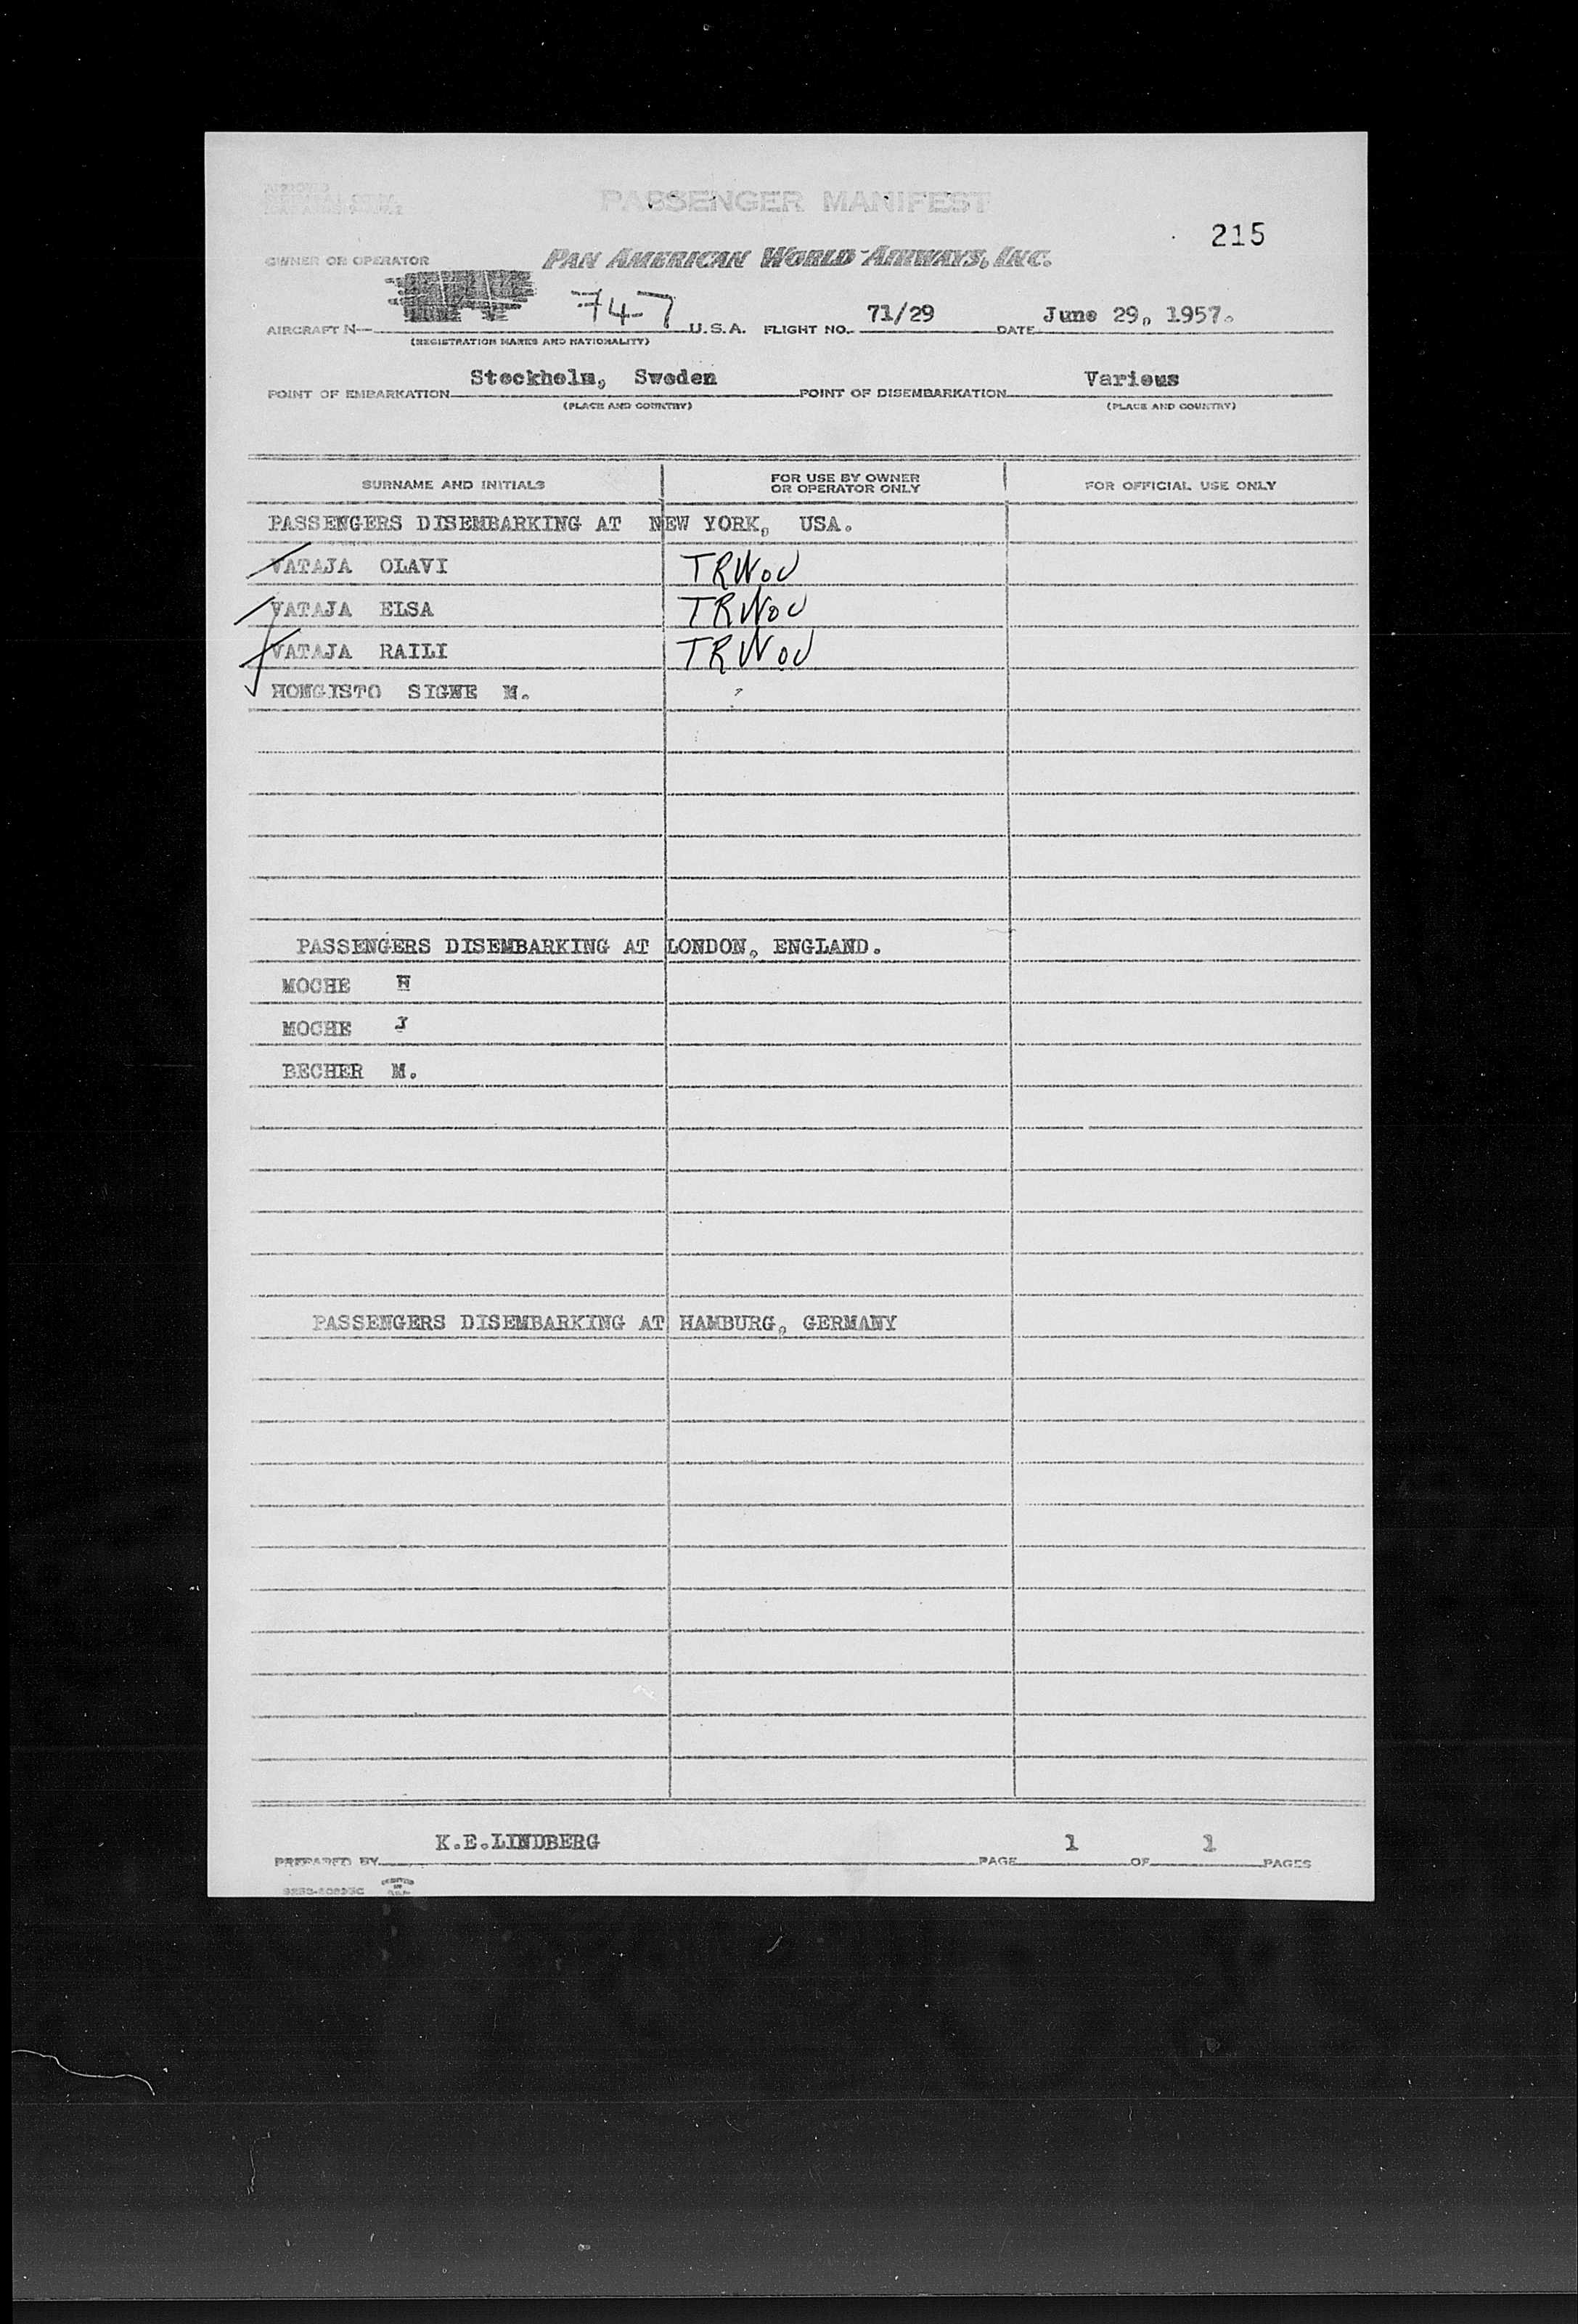 APPROVED
PASSENGER MANIFEST
215
OWNER OR OPERATOR PAN AMERICAN WORLD AIRWAYS, INC.
AIRCRAFT N— 747 U.S.A. FLIGHT NO. 71/29 DATE June 29, 1957.
(REGISTRATION MARKS AND NATIONALITY)
POINT OF EMBARKATION Stockholm, Sweden POINT OF DISEMBARKATION Various
(PLACE AND COUNTRY) (PLACE AND COUNTRY)
SURNAME AND INITIALS FOR USE BY OWNER OR OPERATOR ONLY FOR OFFICIAL USE ONLY
PASSENGERS DISEMBARKING AT NEW YORK, USA.
VATAJA OLAVI TRWOV
VATAJA ELSA TRWOV
VATAJA RAILI TRWOV
HONGISTO SIGNE M.
PASSENGERS DISEMBARKING AT LONDON, ENGLAND.
MOCHE H
MOCHE J
BECHER M.
PASSENGERS DISEMBARKING AT HAMBURG, GERMANY
PREPARED BY K.E.LINDBERG PAGE 1 OF 1 PAGES